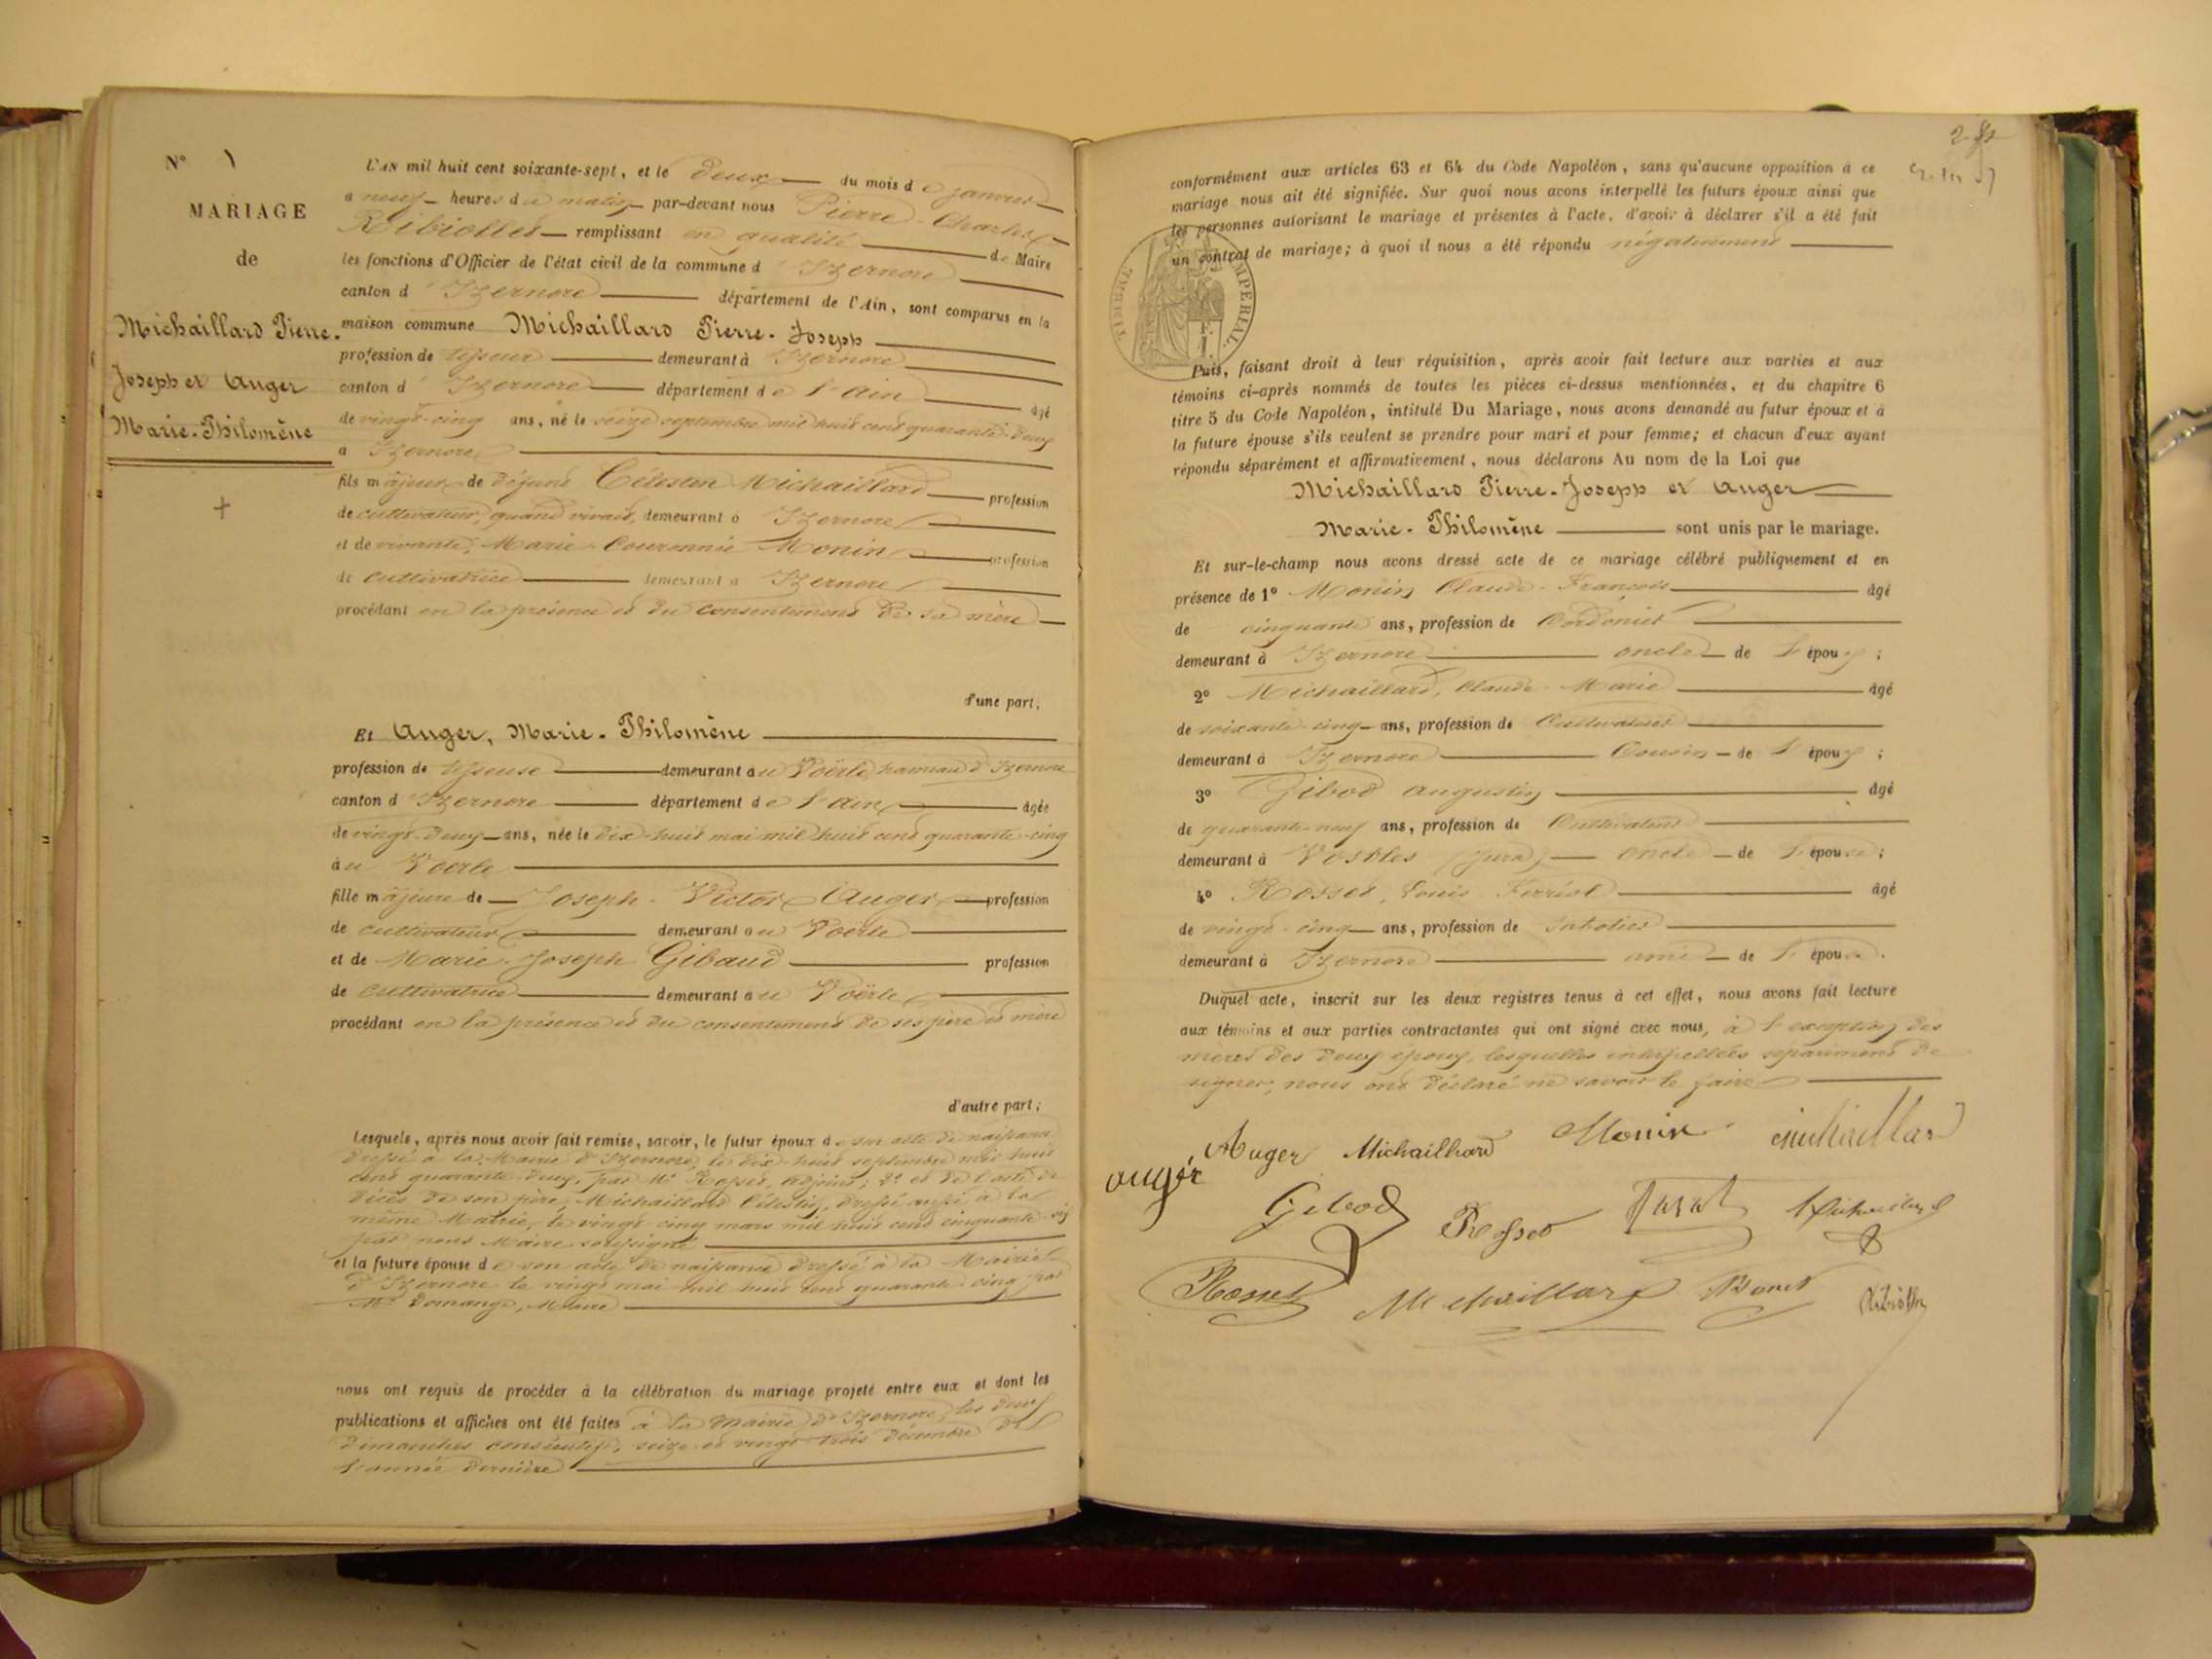 N° 1
MARIAGE
de
Michaillard Pierre-
Joseph et Auger
Marie-Philomène
L'AN mil huit cent soixante-sept, et le deux du mois de janvier
à neuf heures du matin par-devant nous Pierre-Charles
Ribiollet remplissant en qualité de Maire
les fonctions d'Officier de l'état civil de la commune d'Izernore
canton d'Izernore département de l'Ain, sont comparus en la
maison commune Michaillard Pierre-Joseph
profession de tisseur demeurant à Izernore
canton d'Izernore département de l'Ain âgé
de vingt-cinq ans, né le seize septembre mil huit cent quarante-deux
à Izernore
fils majeur de défunt Célestin Michaillard profession
de cultivateur, quand vivait, demeurant à Izernore
et de vivante, Marie Couronnée Monin profession
de cultivatrice demeurant à Izernore
procédant en la présence et du consentement de sa mère
d'une part,
Et Auger, Marie-Philomène
profession de tisseuse demeurant au Voërle hameau d'Izernore
canton d'Izernore département de l'Ain âgée
de vingt-deux ans, née le dix-huit mai mil huit cent quarante-cinq
au Voerle
fille majeure de Joseph-Victor Auger profession
de cultivateur demeurant au Voërle
et de Marie-Joseph Gibaud profession
de cultivatrice demeurant au Voërle
procédant en la présence et du consentement de ses père et mère
d'autre part;
Lesquels, après nous avoir fait remise, savoir, le futur époux de son acte de naissance
dressé à la Mairie d'Izernore, le dix-huit septembre mil huit
cent quarante-deux, par Mr Rosset, adjoint; 2° et de l'acte de
décès de son père, Michaillard Célestin, dressé aussi à la
même Mairie, le vingt-cinq mars mil huit cent cinquante-six
par nous Maire soussigné
et la future épouse de son acte de naissance dressé à la Mairie
d'Izernore le vingt mai mil huit cent quarante-cinq par
Mr Domange, Maire
nous ont requis de procéder à la célébration du mariage projeté entre eux et dont les
publications et affiches ont été faites à la Mairie d'Izernore, les deux
dimanches consécutifs, seize et vingt-trois décembre de
l'année dernière
conformément aux articles 63 et 64 du Code Napoléon, sans qu'aucune opposition à ce
mariage nous ait été signifiée. Sur quoi nous avons interpellé les futurs époux ainsi que
les personnes autorisant le mariage et présentes à l'acte, d'avoir à déclarer s'il a été fait
un contrat de mariage; à quoi il nous a été répondu négativement
TIMBRE IMPERIAL
Puis, faisant droit à leur réquisition, après avoir fait lecture aux parties et aux
témoins ci-après nommés de toutes les pièces ci-dessus mentionnées, et du chapitre 6
titre 5 du Code Napoléon, intitulé Du Mariage, nous avons demandé au futur époux et à
la future épouse s'ils veulent se prendre pour mari et pour femme; et chacun d'eux ayant
répondu séparément et affirmativement, nous déclarons Au nom de la Loi que
Michaillard Pierre-Joseph et Auger
Marie-Philomène sont unis par le mariage.
Et sur-le-champ nous avons dressé acte de ce mariage célébré publiquement et en
présence de 1° Monin Claude-François âgé
de cinquante ans, profession de Cordonier
demeurant à Izernore oncle de l'époux;
2° Michaillard, Claude-Marie âgé
de soixante-cinq ans, profession de Cultivateur
demeurant à Izernore Cousin de l'époux;
3° Gibod Augustin âgé
de quarante-neuf ans, profession de Cultivateur
demeurant à Vosbles (Jura) oncle de l'épouse;
4° Rosset, Louis Ferréol âgé
de vingt-cinq ans, profession de sabotier
demeurant à Izernore ami de l'épouse.
Duquel acte, inscrit sur les deux registres tenus à cet effet, nous avons fait lecture
aux témoins et aux parties contractantes qui ont signé avec nous, à l'exception des
mères des deux époux, lesquelles interpellées séparément de
signer, nous ont déclaré ne savoir le faire
Auger Michaillard Monin Michaillard
auger
Gibod Rosset Michaillard
Rosset Michaillard Ribiollet